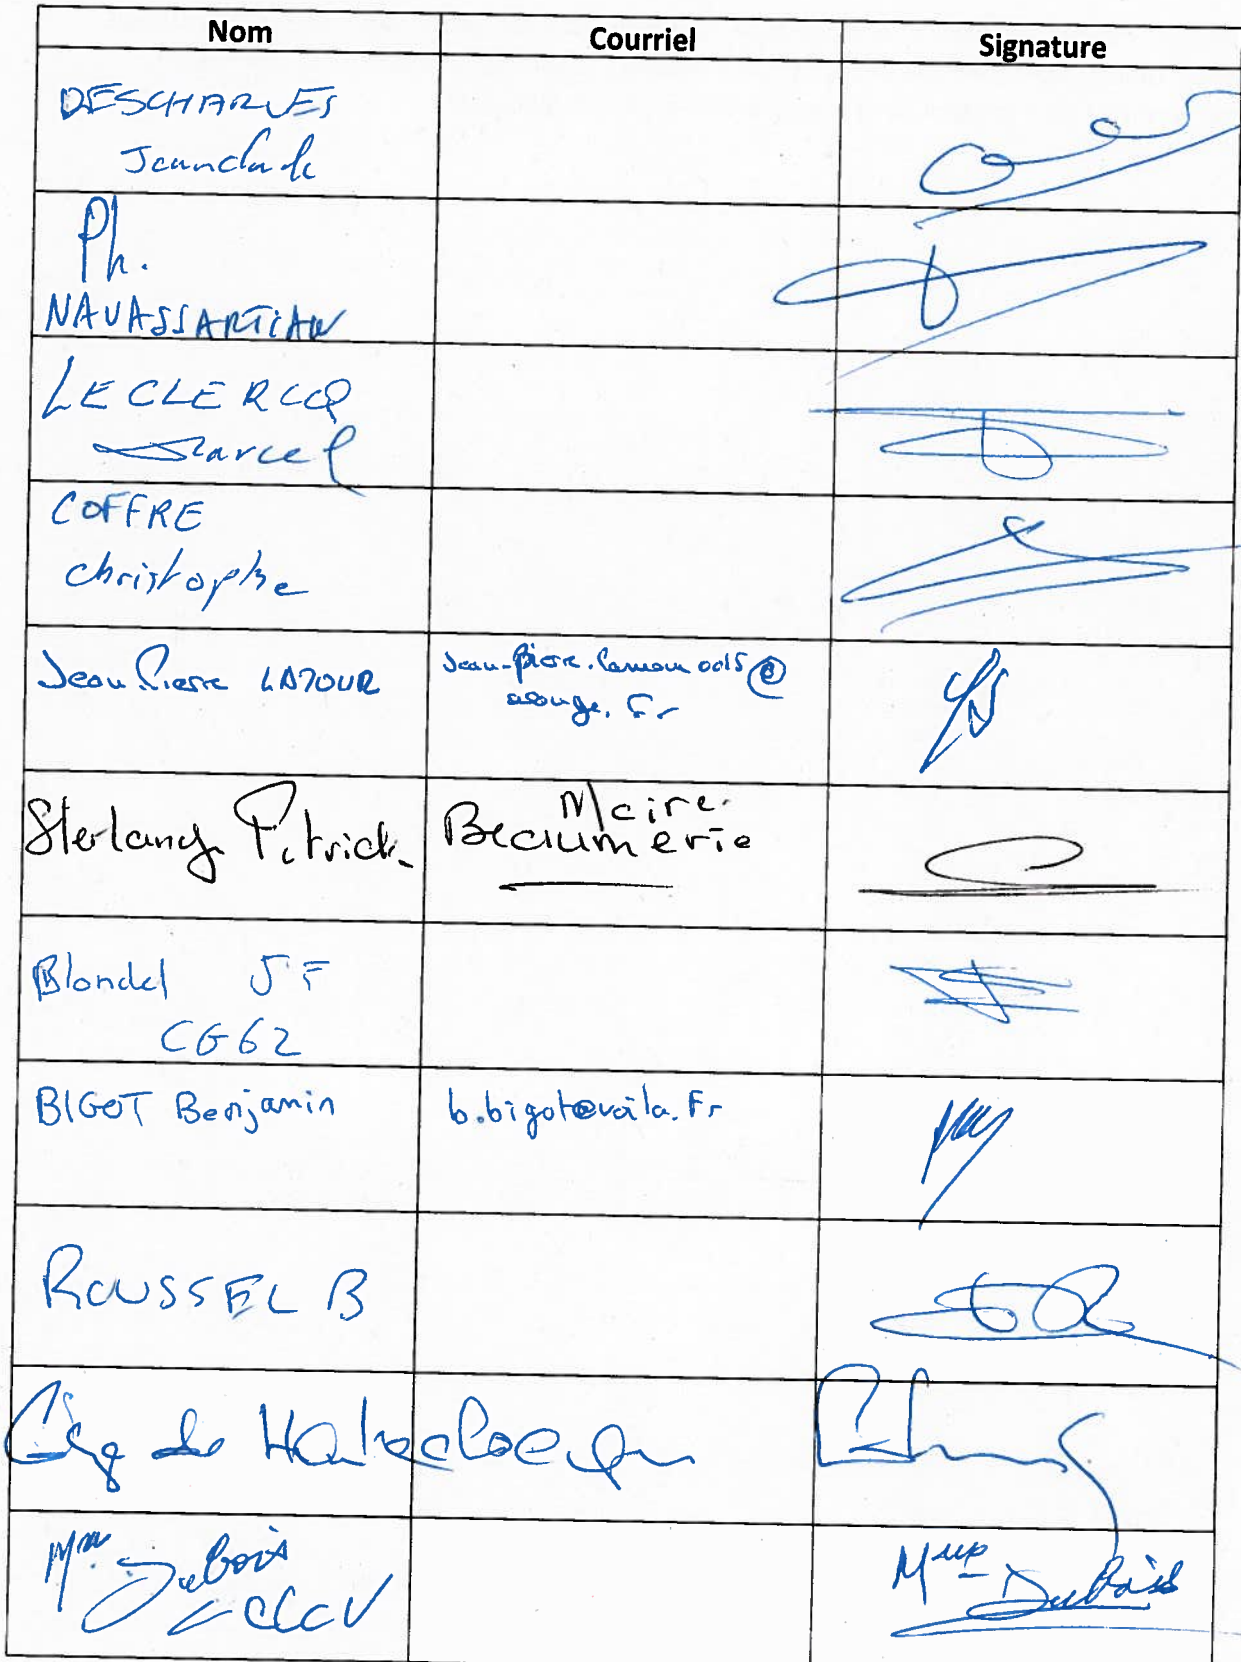 Nom Courriel Signature
DESCHARLES
Jeanclaude
Ph.
NAVASSARTIAN
LECLERCQ
Marcel
COFFRE
christophe
Jean Pierre LATOUR
Jean-Pierre.
orange.Fr
Patrick
Maire
Beaumerie
Blondel JF
CG62
BIGOT Benjamin b.bigot@voila.Fr
ROUSSEL B
de
Mme Dubois
CLCV
Dubois